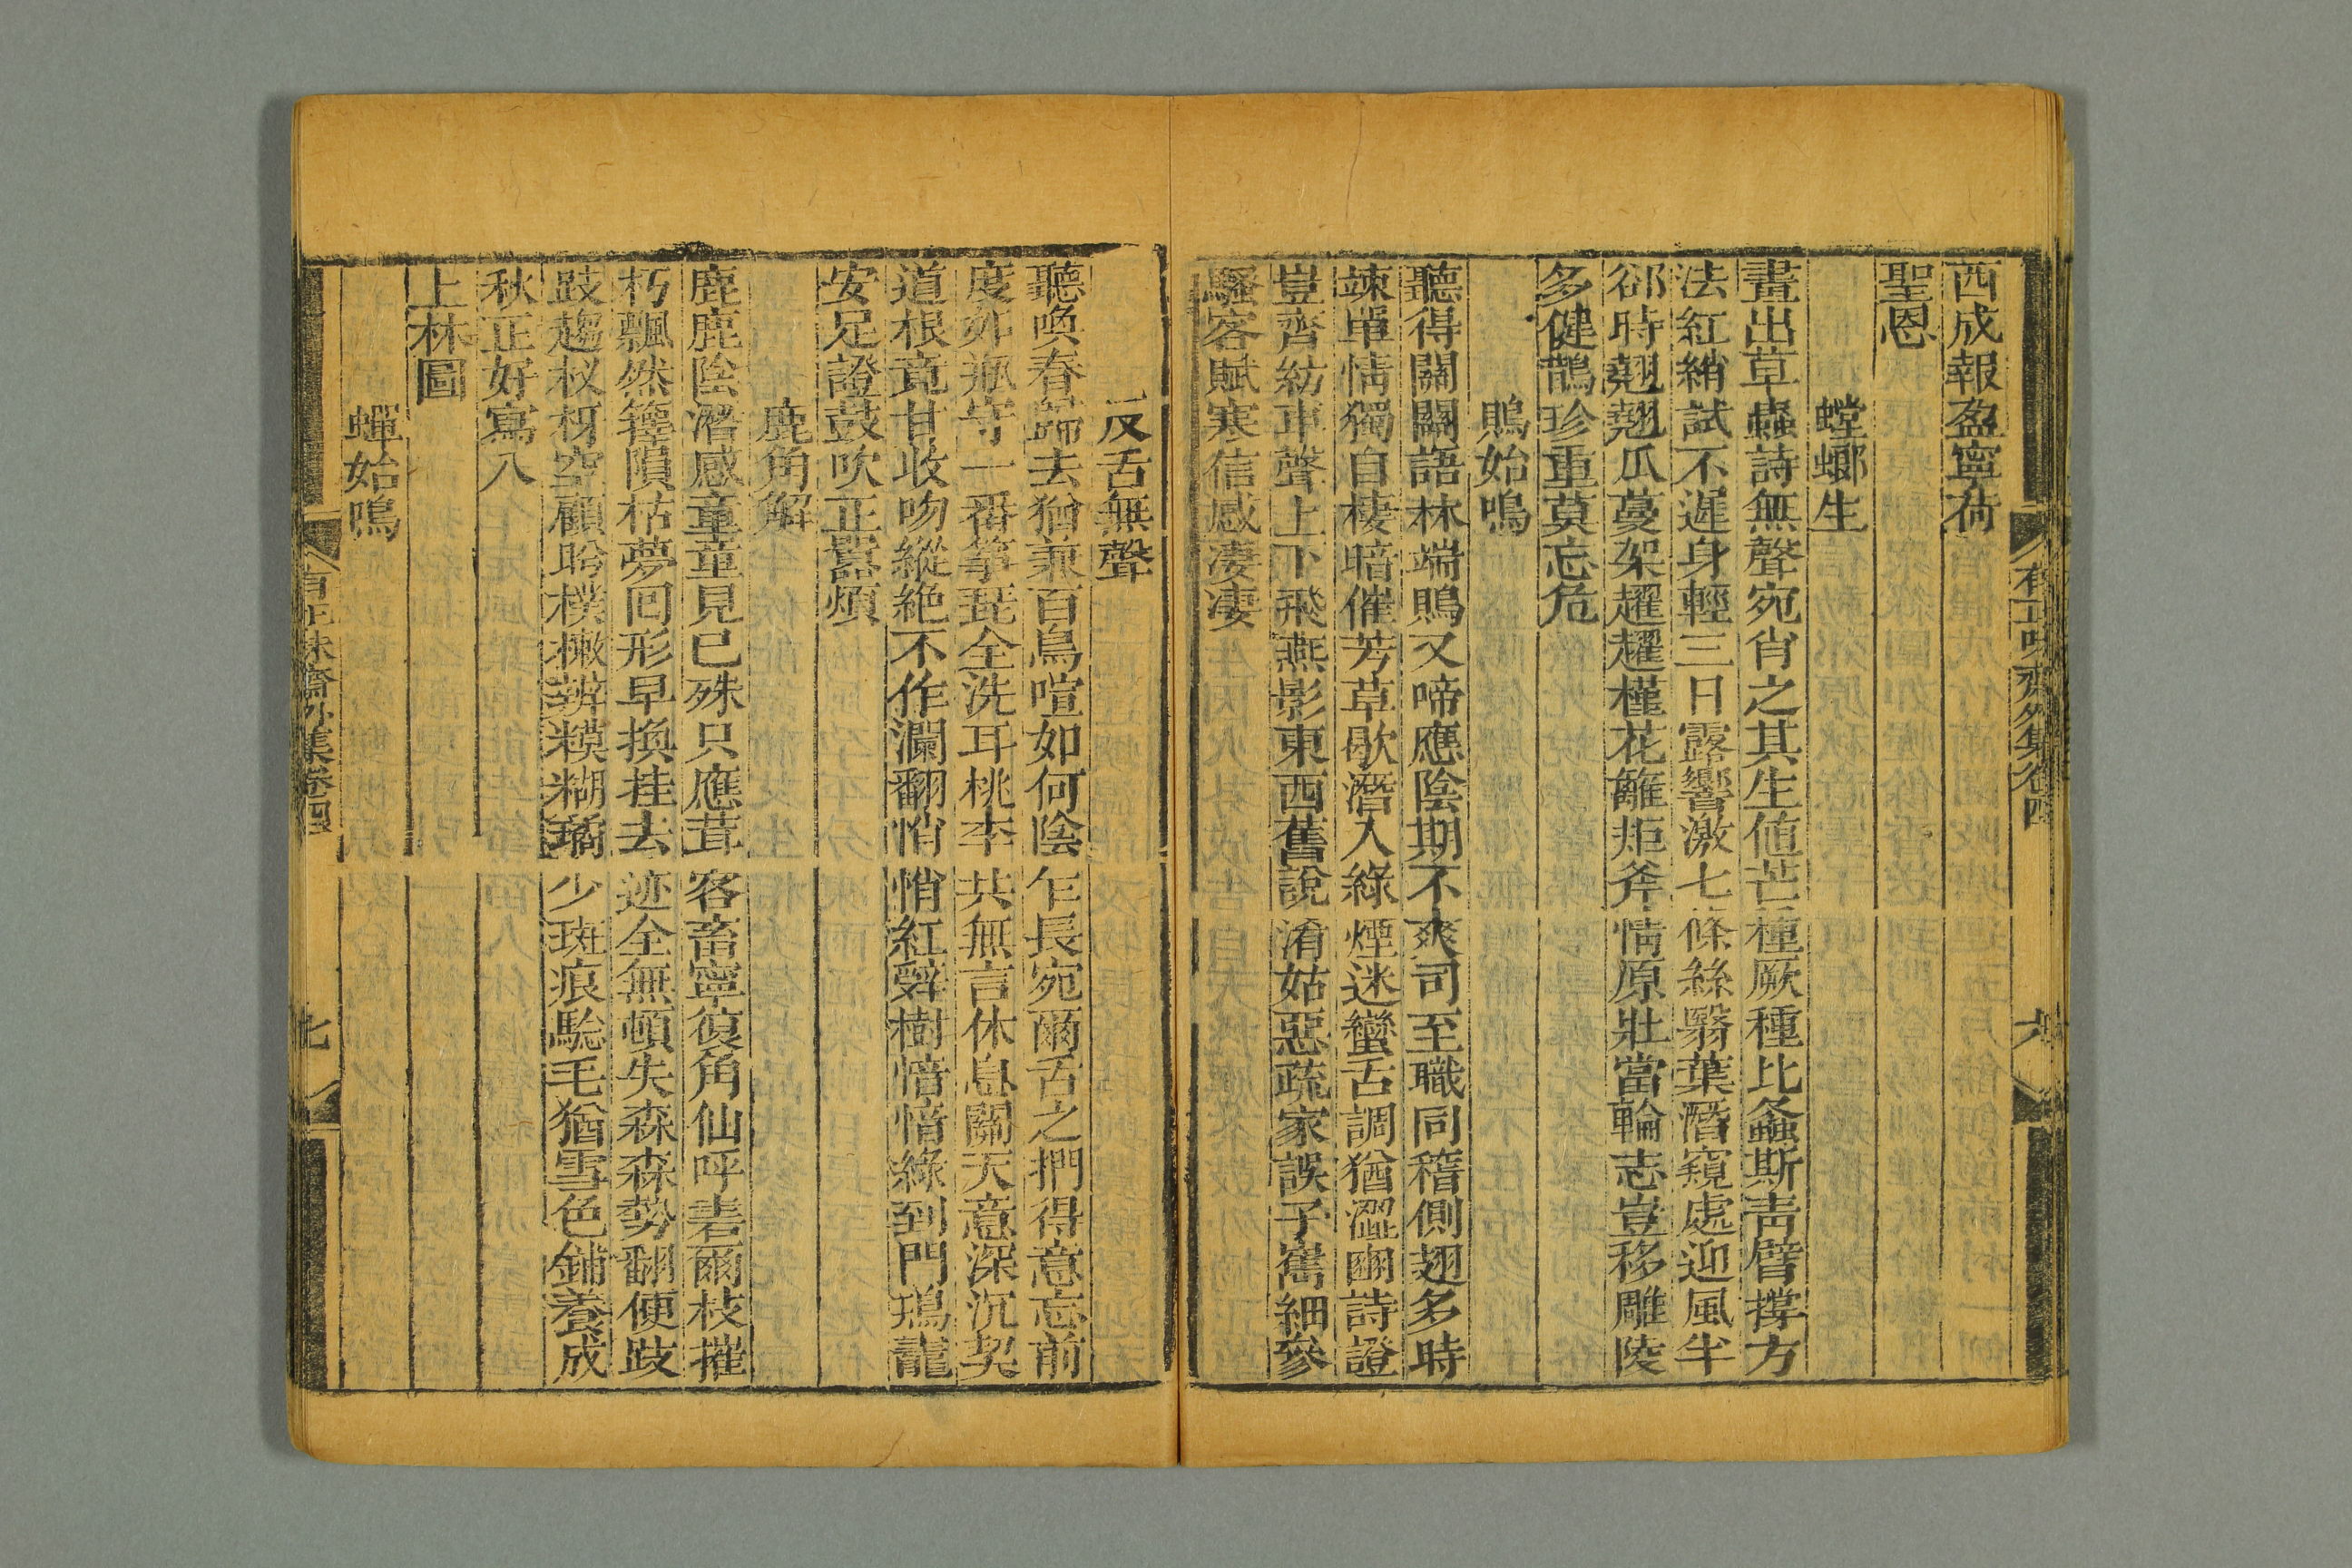 有正味齋外集卷四
六
西成報盈寧荷
聖恩
螳螂生
畫出草蟲詩無聲宛肖之其生値芒種厥種比螽斯靑臂撐方
法紅綃試不遲身輕三日露響激七條絲翳葉潛窺處迎風半
郤時翹翹瓜蔓架趯趯槿花籬拒斧情原壯當輪志豈移雕陵
多健鵲珍重莫忘危
鵙始鳴
聽得關關語林端鵙又啼應陰期不爽司至職同稽側翅多時
竦單情獨自棲暗催芳草歇潛入綠煙迷蠻舌調猶澀豳詩證
豈齊紡車聲上下飛燕影東西舊說淆姑惡蔬家誤子嶲細參
騷客賦寒信感淒淒
反舌無聲
聽喚春歸去猶兼百鳥喧如何陰乍長宛爾舌之捫得意忘前
度如瓶守一番箏琵全洗耳桃李共無言休息關天意深沉契
道根竟甘收吻縱絶不作瀾翻悄悄紅辭樹愔愔綠到門鵶龍
安足證鼓吹正囂煩
鹿角解
鹿鹿陰潛感童童見已殊只應茸客畜寧復角仙呼砉爾枝摧
朽飄然籜隕枯夢回形早換挂去迹全無頓失森森勢翻便歧
歧趨杈枒空顧盼樸樕辨糢糊璚少斑痕駞毛猶雪色鋪養成
秋正好寫入
上林圖
蟬始鳴
有正味齋外集卷四
七